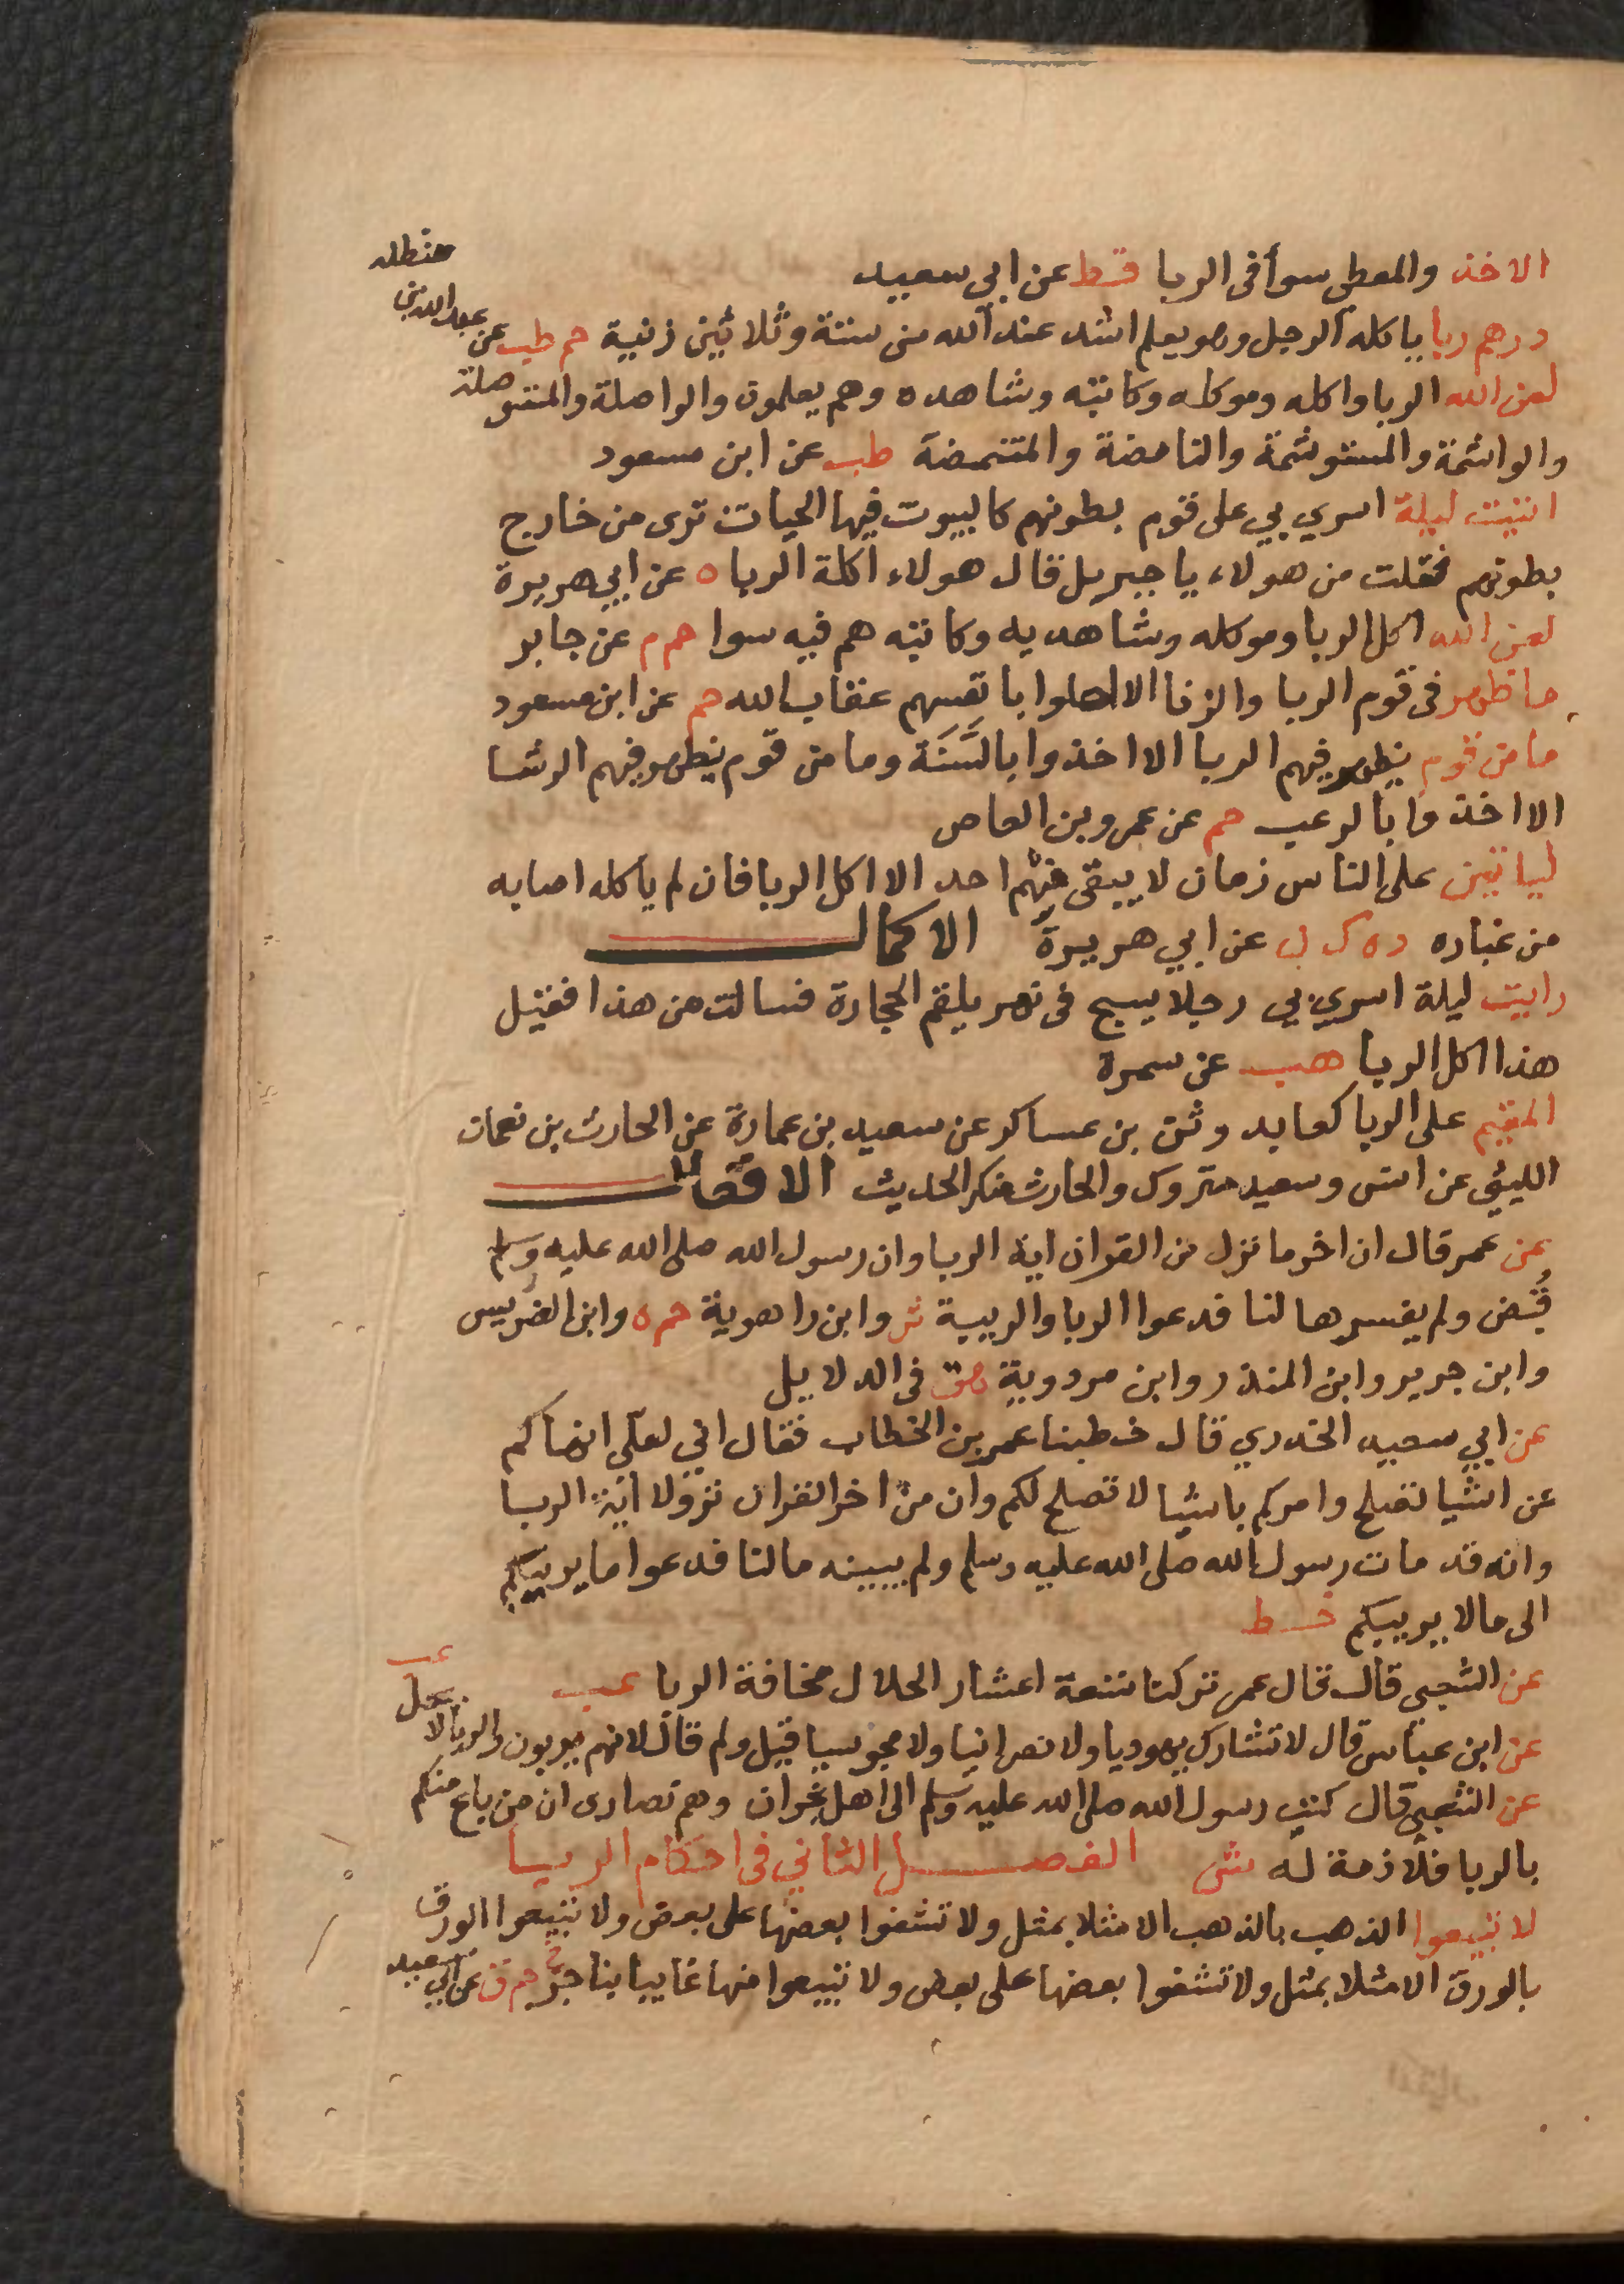 الاخذ والمعطى سوأ فى الربا قط عن ابي سعيد
درهم ربا ياكله الرجل وهو يعلم اشد عند الله من ستة وثلاثين زنية حم طب عن عبد الله بن حنظله
لعن الله الربا واكله وموكله وكاتبه وشاهده وهم يعلمون والواصلة والمستوصلة
والواشمة والمستوشمة والنامصة والمتنمصة طب عن ابن مسعود
اتيت ليلة اسري بي على قوم بطونهم كالبيوت فيها الحيات ترى من خارج
بطونهم فقلت من هولاء يا جبريل قال هولاء اكلة الربا ه عن ابي هريرة
لعن الله اكل الربا وموكله وشاهديه وكاتبه هم فيه سوا حم م عن جابر
ما ظهر فى قوم الربا والزنا الا احلوا بانفسهم عقاب الله حم عن ابن مسعود
ما من قوم يظهر فيهم الربا الا اخذوا بالسَّنَة وما من قوم يظهر فيهم الرشا
الا اخذوا بالرعب حم عن عمرو بن العاص
لياتين على الناس زمان لا يبقى منهم احد الا اكل الربا فان لم ياكله اصابه
من غباره د ه ك ق عن ابي هريرة الاكمال
رايت ليلة اسري بي رجلا يسبح فى نهر يلقم الحجارة فسالت من هذا فقيل
هذا اكل الربا هب عن سمرة
المقيم على الربا كعابد وثن بن عساكر عن سعيد بن عمارة عن الحارث بن نعمان
الليثى عن انس وسعيد متروك والحارث منكر الحديث الافعال
عن عمر قال ان اخر ما نزل من القران اية الربا وان رسول الله صلى الله عليه وسلم
قُبض ولم يفسرها لنا فدعوا الربا والريبة ش وابن راهوية حم ه وابن الضريس
وابن جرير وابن المنذر وابن مردوية هق فى الدلايل
عن ابي سعيد الخدري قال خطبنا عمر بن الخطاب فقال اني لعلى انهاكم
عن اشيا تصلح وامركم باشيا لا تصلح لكم وان من اخر القران نزولا اية الربا
وانه قد مات رسول الله صلى الله عليه وسلم ولم يبينه مالنا فدعوا ما يريبكم
الى ما لا يريبكم خط
عن الشعبى قال قال عمر تركنا تسعة اعشار الحلال مخافة الربا عب
عن ابن عباس قال لا تشارك يهوديا ولا نصرانيا ولا مجوسيا قيل ولم قال لانهم يربون والربا لا يحل عب
عن الشعبى قال كتب رسول الله صلى الله عليه وسلم الى اهل نجران وهم نصارى ان من باع منكم
بالربا فلا ذمة له ش الفصل الثاني فى احكام الربا
لا تبيعوا الذهب بالذهب الا مثلا بمثل ولا تشفوا بعضها على بعض ولا تبيعوا الورق
بالورق الا مثلا بمثل ولا تشفوا بعضها على بعض ولا تبيعوا منها غايبا بناجز حم ق عن ابي سعيد